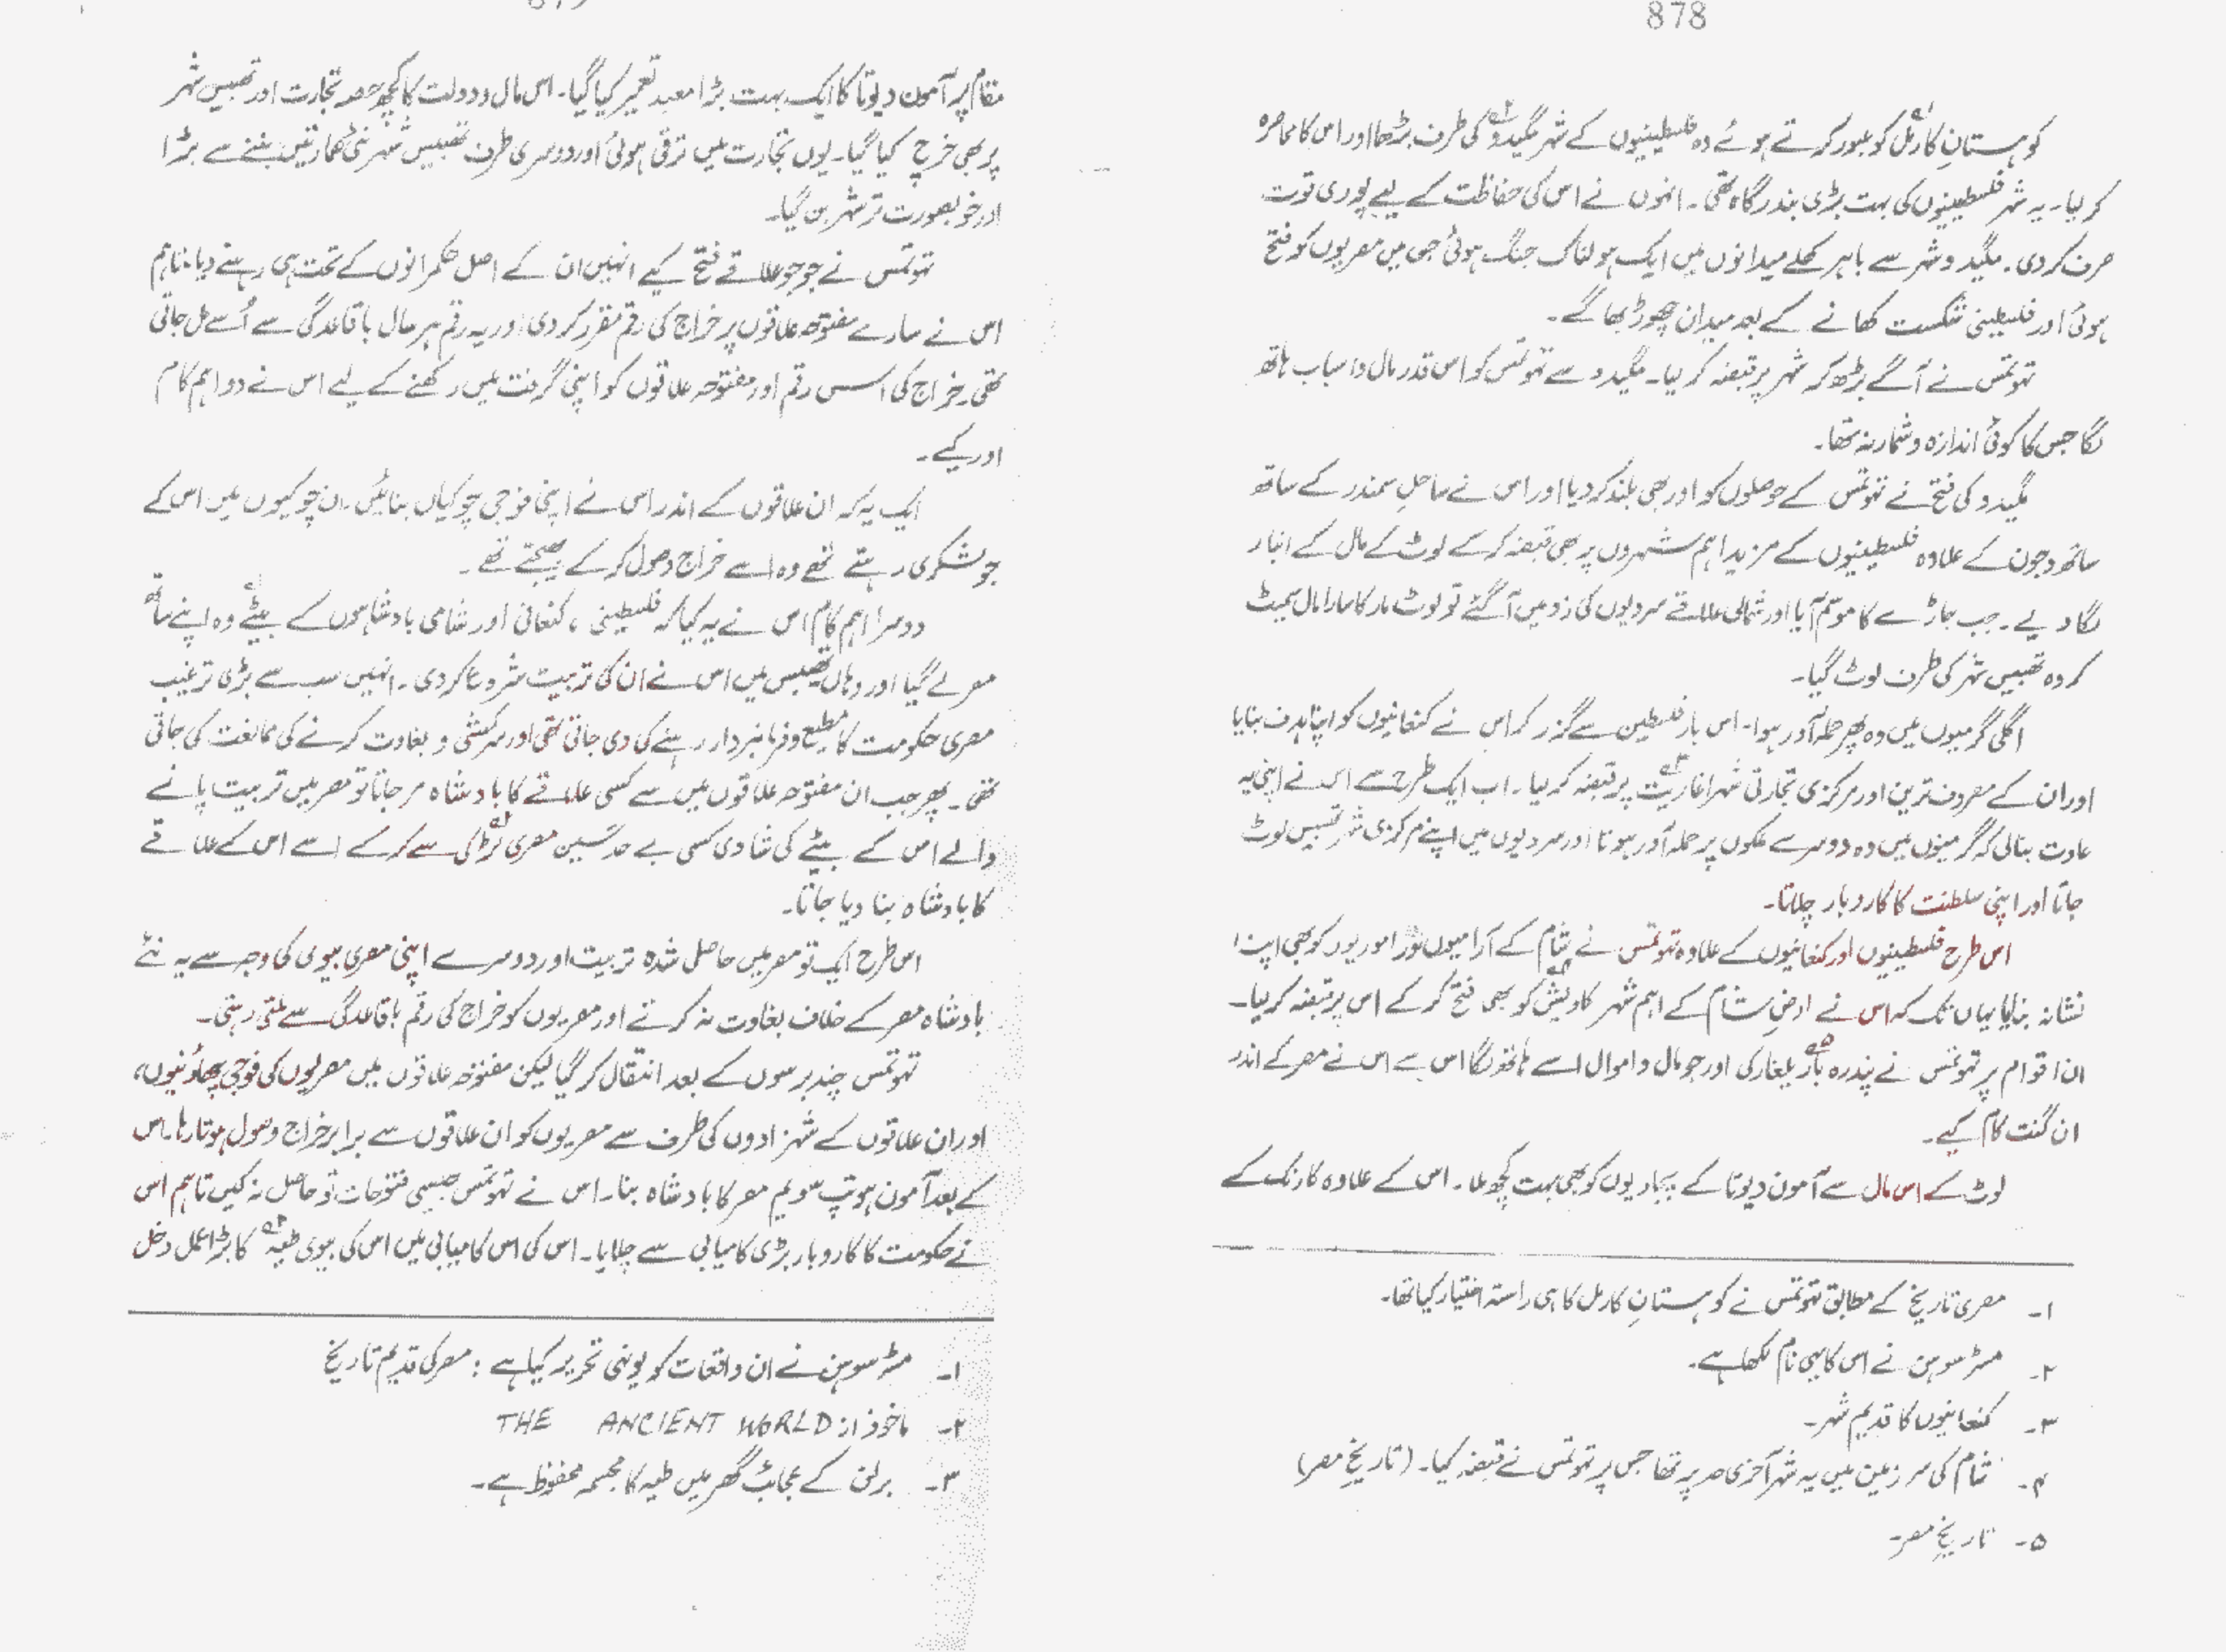 878
کوہستانِ کارمل کو عبور کرتے ہوئے وہ فلسطینیوں کے شہر مگیدو کی طرف بڑھا اور اس کا محاصرہ
کر لیا۔ یہ شہر فلسطینیوں کی بہت بڑی بندرگاہ تھی۔ انہوں نے اس کی حفاظت کے لیے پوری قوت
صرف کر دی۔ مگیدو شہر سے باہر کھلے میدانوں میں ایک ہولناک جنگ ہوئی جس میں مصریوں کو فتح
ہوئی اور فلسطینی شکست کھانے کے بعد میدان چھوڑ بھاگے۔
تہوتمس نے آگے بڑھ کر شہر پر قبضہ کر لیا۔ مگیدو سے تہوتمس کو اس قدر مال و اسباب ہاتھ
لگا جس کا کوئی اندازہ و شمار نہ تھا۔
مگیدو کی فتح نے تہوتمس کے حوصلوں کو اور بھی بلند کر دیا اور اس نے ساحلِ سمندر کے ساتھ
ساتھ وجون کے علاوہ فلسطینیوں کے مزید اہم شہروں پر بھی قبضہ کر کے لوٹ کے مال کے انبار
لگا دیے۔ جب جاڑے کا موسم آیا اور شمالی علاقے سردیوں کی زد میں آگئے تو لوٹ مار کا سارا مال سمیٹ
کر وہ تھیبس شہر کی طرف لوٹ گیا۔
اگلی گرمیوں میں وہ پھر حملہ آور ہوا۔ اس بار فلسطین سے گزر کر اس نے کنعانیوں کو اپنا ہدف بنایا
اور ان کے معروف ترین اور مرکزی تجارتی شہر اغاریت ۳ پر قبضہ کر لیا۔ اب ایک طرح سے اس نے اپنی یہ
عادت بنا لی کہ گرمیوں میں وہ دوسرے ملکوں پر حملہ آور ہوتا اور سردیوں میں اپنے مرکزی شہر تھیبس لوٹ
جاتا اور اپنی سلطنت کا کاروبار چلاتا۔
اس طرح فلسطینیوں اور کنعانیوں کے علاوہ تہوتمس نے شام کے آرامیوں اور اموریوں کو بھی اپنا
نشانہ بنایا یہاں تک کہ اس نے ارضِ شام کے اہم شہر کادیش ۴ کو بھی فتح کر کے اس پر قبضہ کر لیا۔
ان اقوام پر تہوتمس نے پندرہ بار ۵ یلغار کی اور جو مال و اموال اسے ہاتھ لگا اس سے اس نے مصر کے اندر
ان گنت کام کیے۔
لوٹ کے اس مال سے آمون دیوتا کے پجاریوں کو بھی بہت کچھ ملا۔ اس کے علاوہ کارنک کے
۱۔ مصری تاریخ کے مطابق تہوتمس نے کوہستانِ کارمل کا ہی راستہ اختیار کیا تھا۔
۲۔ مسٹر سوہن نے اس کا یہی نام لکھا ہے۔
۳۔ کنعانیوں کا قدیم شہر۔
۴۔ شام کی سرزمین میں یہ شہر آخری حد پر تھا جس پر تہوتمس نے قبضہ کیا۔ (تاریخِ مصر)
۵۔ تاریخِ مصر۔
مقام پر آمون دیوتا کا ایک بہت بڑا معبد تعمیر کیا گیا۔ اس مال و دولت کا کچھ حصہ تجارت اور تھیبس شہر
پر بھی خرچ کیا گیا۔ یوں تجارت میں ترقی ہوئی اور دوسری طرف تھیبس شہر نئی عمارتیں بننے سے بڑا
اور خوبصورت تر شہر بن گیا۔
تہوتمس نے جو جو علاقے فتح کیے انہیں ان کے اصل حکمرانوں کے تحت ہی رہنے دیا۔ تاہم
اس نے سارے مفتوحہ علاقوں پر خراج کی رقم مقرر کر دی اور یہ رقم ہر سال باقاعدگی سے اُسے مل جاتی
تھی۔ خراج کی اس رقم اور مفتوحہ علاقوں کو اپنی گرفت میں رکھنے کے لیے اس نے دو اہم کام
اور کیے۔
ایک یہ کہ ان علاقوں کے اندر اس نے اپنی فوجی چوکیاں بنائیں۔ ان چوکیوں میں اس کے
جو لشکری رہتے تھے وہ اسے خراج وصول کر کے بھیجتے تھے۔
دوسرا اہم کام اس نے یہ کیا کہ فلسطینی، کنعانی اور شامی بادشاہوں کے بیٹے وہ اپنے ساتھ
مصر لے گیا اور وہاں تھیبس میں اس نے ان کی تربیت شروع کر دی۔ انہیں سب سے بڑی ترغیب
مصری حکومت کا مطیع و فرمانبردار رہنے کی دی جاتی تھی اور سرکشی و بغاوت کرنے کی ممانعت کی جاتی
تھی۔ پھر جب ان مفتوحہ علاقوں میں سے کسی علاقے کا بادشاہ مر جاتا تو مصر میں تربیت پانے
والے اس کے بیٹے کی شادی کسی بے حد حسین مصری لڑکی سے کر کے اسے اس کے علاقے
کا بادشاہ بنا دیا جاتا۔
اس طرح ایک تو مصر میں حاصل شدہ تربیت اور دوسرے اپنی مصری بیوی کی وجہ سے یہ نئے
بادشاہ مصر کے خلاف بغاوت نہ کرتے اور مصریوں کو خراج کی رقم باقاعدگی سے ملتی رہتی۔
تہوتمس چند برسوں کے بعد انتقال کر گیا لیکن مفتوحہ علاقوں میں مصریوں کی فوجی چھاؤنیوں،
اور ان علاقوں کے شہزادوں کی طرف سے مصریوں کو ان علاقوں سے برابر خراج وصول ہوتا رہا۔ اس
کے بعد آمون ہوتپ سویم مصر کا بادشاہ بنا۔ اس نے تہوتمس جیسی فتوحات تو حاصل نہ کیں تاہم اس
نے حکومت کا کاروبار بڑی کامیابی سے چلایا۔ اس کی اس کامیابی میں اس کی بیوی طیہ ۳ کا بڑا عمل دخل
۱۔ مسٹر سوہن نے ان واقعات کو یونہی تحریر کیا ہے : مصر کی قدیم تاریخ
۲۔ ماخوذ از THE ANCIENT WORLD
۳۔ برلن کے عجائب گھر میں طیہ کا مجسمہ محفوظ ہے۔